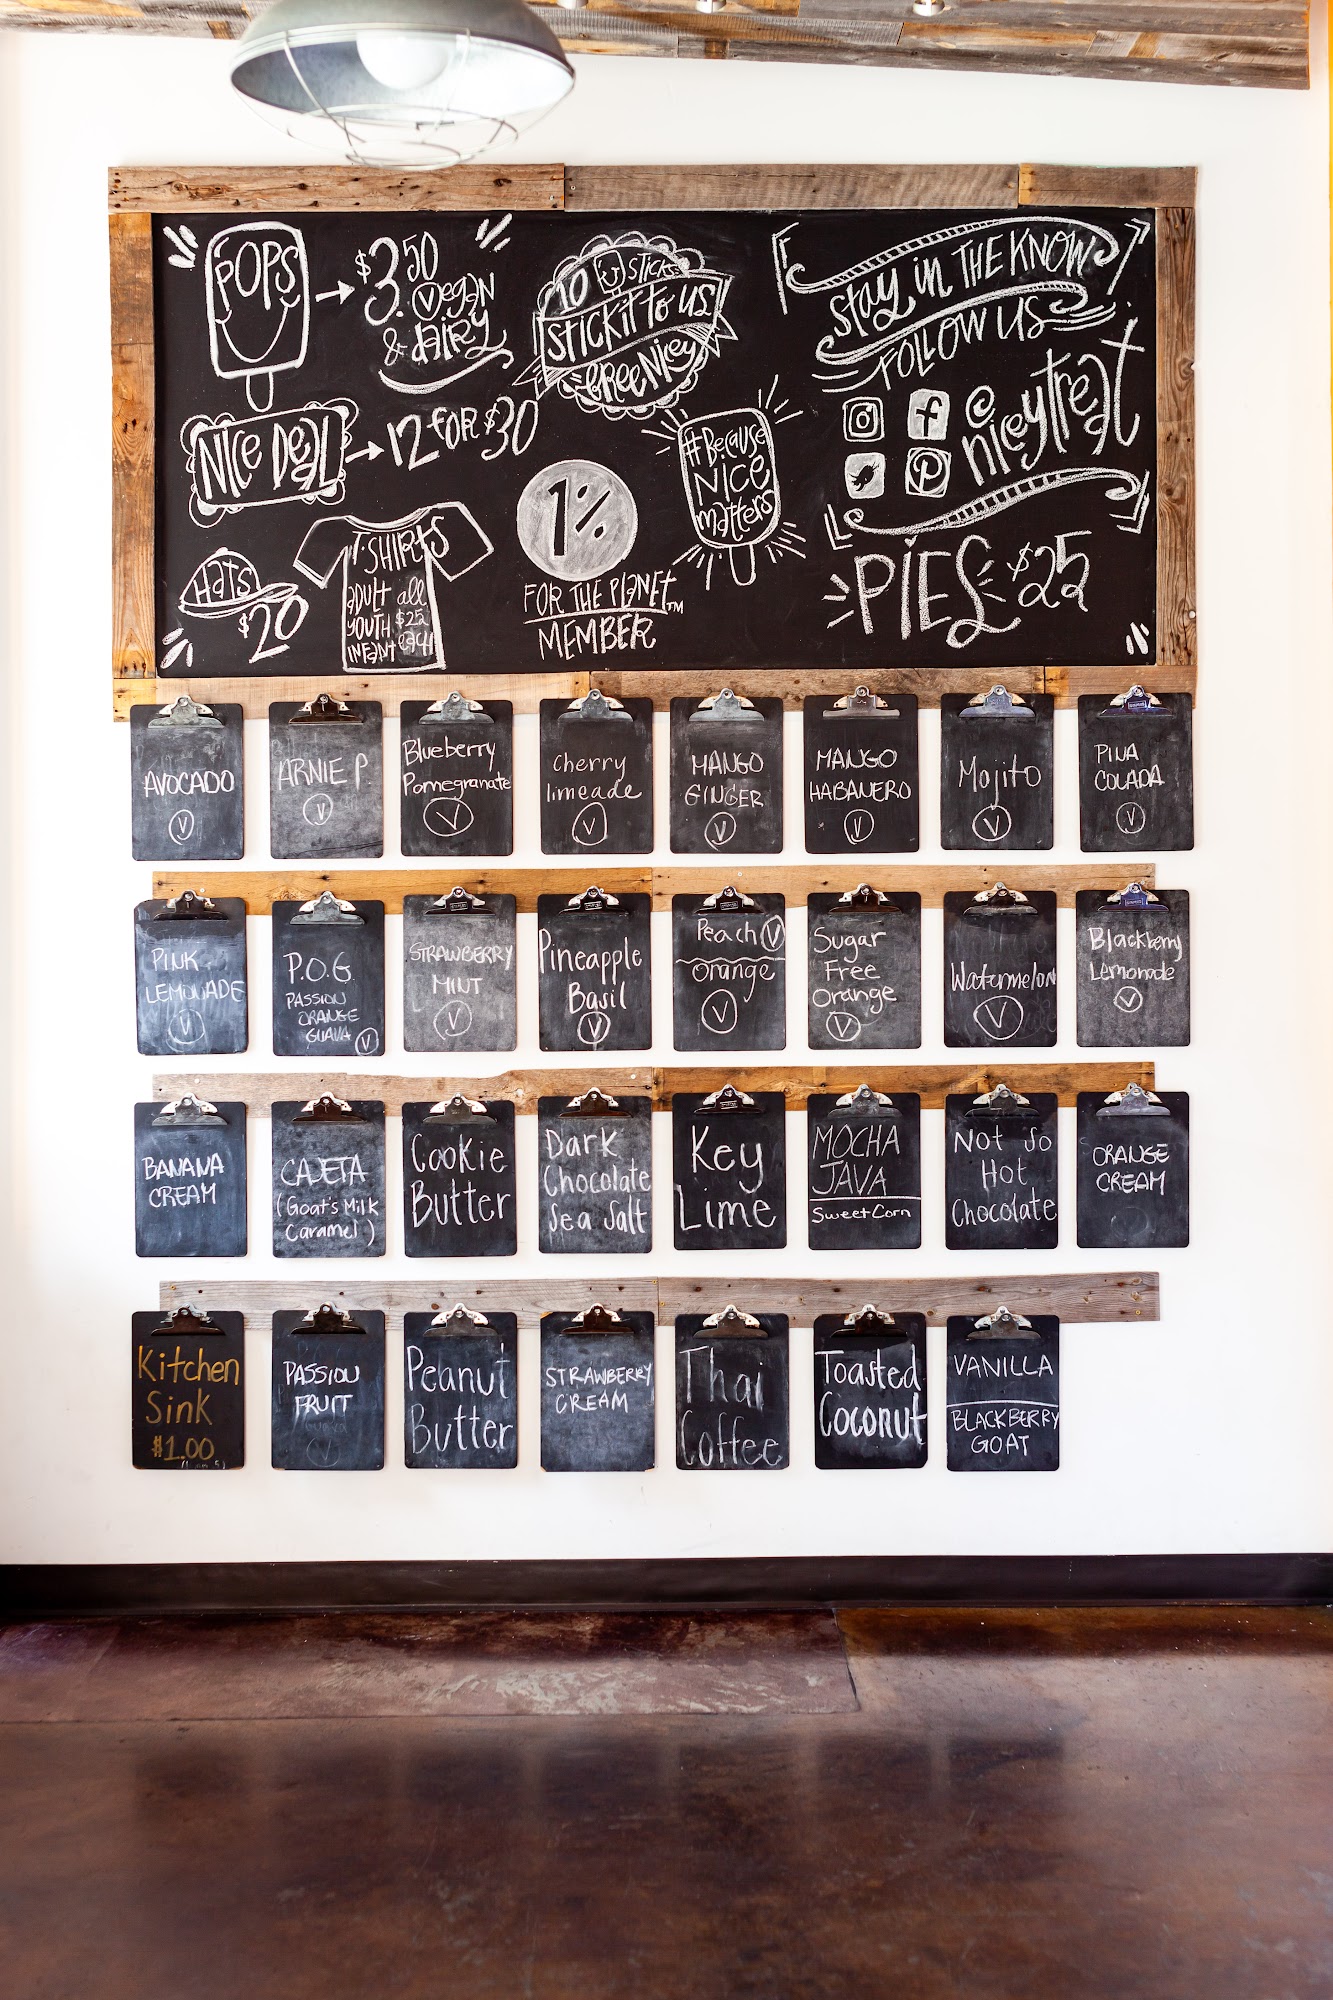 POPS
$3.50
Vegan
& dairy
NICE DEAL
12 FOR $30
HATS
$20
T-SHIRTS
ADULT all
YOUTH $25
INFANT each
10 STICKS
STICK IT TO US
FREE NICEY
1%
FOR THE PLANET™
MEMBER
#Because
NICE
matters
Stay in THE KNOW
FOLLOW US
f
@niceytreat
PIES $25
AVOCADO
V
ARNIE P.
V
Blueberry
Pomegranate
V
Cherry
limeade
V
MANGO
GINGER
V
MANGO
HABANERO
V
Mojito
V
PINA
COLADA
V
PINK
LEMONADE
V
P.O.G
PASSION
ORANGE
GUAVA V
STRAWBERRY
MINT
V
Pineapple
Basil
V
Peach V
Orange
V
Sugar
Free
Orange
V
Watermelon
V
Blackberry
Lemonade
V
BANANA
CREAM
CAJETA
(Goat's Milk
Caramel)
Cookie
Butter
Dark
Chocolate
Sea Salt
Key
Lime
MOCHA
JAVA
Sweet Corn
Not So
Hot
Chocolate
ORANGE
CREAM
Kitchen
Sink
$1.00
PASSION
FRUIT
V
Peanut
Butter
STRAWBERRY
CREAM
Thai
Coffee
Toasted
Coconut
VANILLA
BLACKBERRY
GOAT